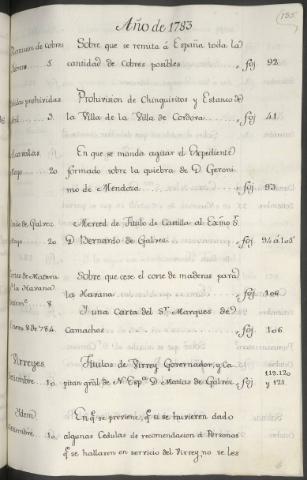 Año de 1783
185
Remision de Cobres Sobre que se remita á España toda la
Febrero. 5 cantidad de Cobres posibles " foj 92
Bebidas prohividas Prohivision de Chinguiritos y Estanco de
3. la Villa de la Villa de Cordova " foj 41
Alcavalas En que se manda agitar el Expediente
Mayo. 20 formado sobre la quiebra de D. Geroni-
mo de Mendoza " foj 93
Conde de Galvez Merced de Titulo de Castilla al Exmo Sr.
Mayo 20 D. Bernardo de Galvez " foj 94 á 105
Cortes de Madera Sobre que cese el corte de maderas para
(la Havana) la Havana " foj 106
8 Y una Carta del Sr. Marques de
Enero 8 de 784 Camachos " foj 106
Virreyes Titulos de Virrey Governador, y Ca- 119.120
10 pitan gral de N. Espa. D. Matias de Galvez " foj y 121
Idem En qe se previene, qe si se huvieren dado
10 algunas Cedulas de recomendacion á Personas
qe se hallaren en servicio del Virrey no se les